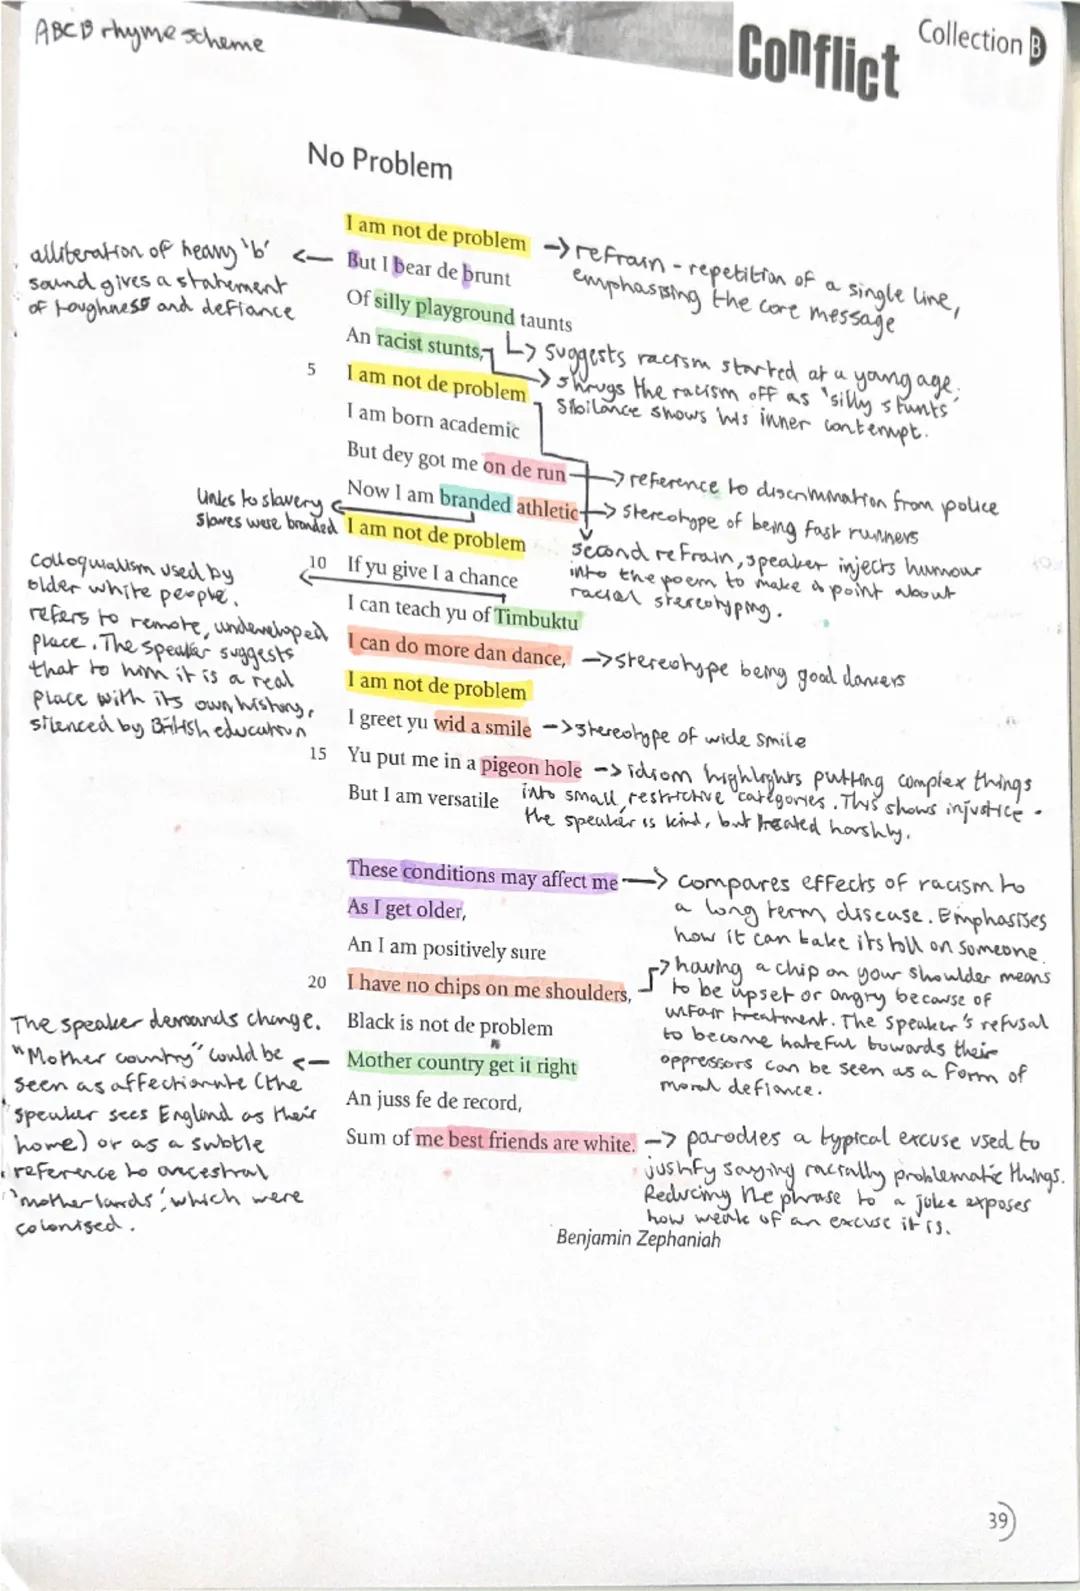 ABCB rhyme scheme
Conflict
Collection B
No Problem
I am not de problem
But I bear de brunt
Of silly playground taunts
An racist stunts,
5 I am not de problem
I am born academic
But dey got me on de run
Now I am branded athletic
I am not de problem
10 If yu give I a chance
I can teach yu of Timbuktu
I can do more dan dance,
I am not de problem
I greet yu wid a smile
15 Yu put me in a pigeon hole
But I am versatile
These conditions may affect me
As I get older,
An I am positively sure
20 I have no chips on me shoulders,
Black is not de problem
Mother country get it right
An juss fe de record,
Sum of me best friends are white.
Benjamin Zephaniah
alliteration of heavy 'b'
sound gives a statement
of toughness and defiance
refrain - repetition of a single line,
emphasising the core message
suggests racism started at a young age.
shrugs the racism off as 'silly stunts'
Sibilance shows his inner contempt.
reference to discrimination from police
stereotype of being fast runners
second refrain, speaker injects humour
into the poem to make a point about
racial stereotyping.
links to slavery
slaves were branded
Colloquialism used by
older white people.
refers to remote, undeveloped
place. The speaker suggests
that to him it is a real
place with its own history,
silenced by British education
stereotype being good dancers
stereotype of wide smile
idiom highlights putting complex things
into small, restrictive categories. This shows injustice -
the speaker is kind, but treated harshly.
compares effects of racism to
a long term disease. Emphasises
how it can take its toll on someone.
having a chip on your shoulder means
to be upset or angry because of
unfair treatment. The speaker's refusal
to become hateful towards their
oppressors can be seen as a form of
moral defiance.
The speaker demands change.
"Mother country" could be
seen as affectionate (the
speaker sees England as their
home) or as a subtle
reference to ancestral
'motherlands', which were
colonised.
parodies a typical excuse used to
justify saying racially problematic things.
Reducing the phrase to a joke exposes
how weak of an excuse it is.
39